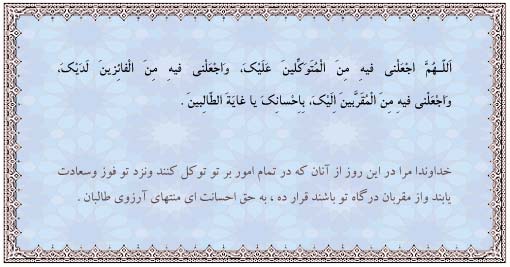 اَللّـهُمَّ اجْعَلْنى فيهِ مِنَ الْمُتَوَکِّلينَ عَلَيْکَ، وَاجْعَلْنى فيهِ مِنَ الْفائِزينَ لَدَيْکَ،
وَاجْعَلْنى فيهِ مِنَ الْمُقَرَّبينَ اِلَيْکَ، بِاِحْسانِکَ يا غايَةَ الطّالِبينَ .
خداوندا مرا در این روز از آنان که در تمام امور بر تو توکل کنند ونزد تو فوز وسعادت
یابند واز مقربان درگاه تو باشند قرار ده ، به حق احسانت ای منتهای آرزوی طالبان .